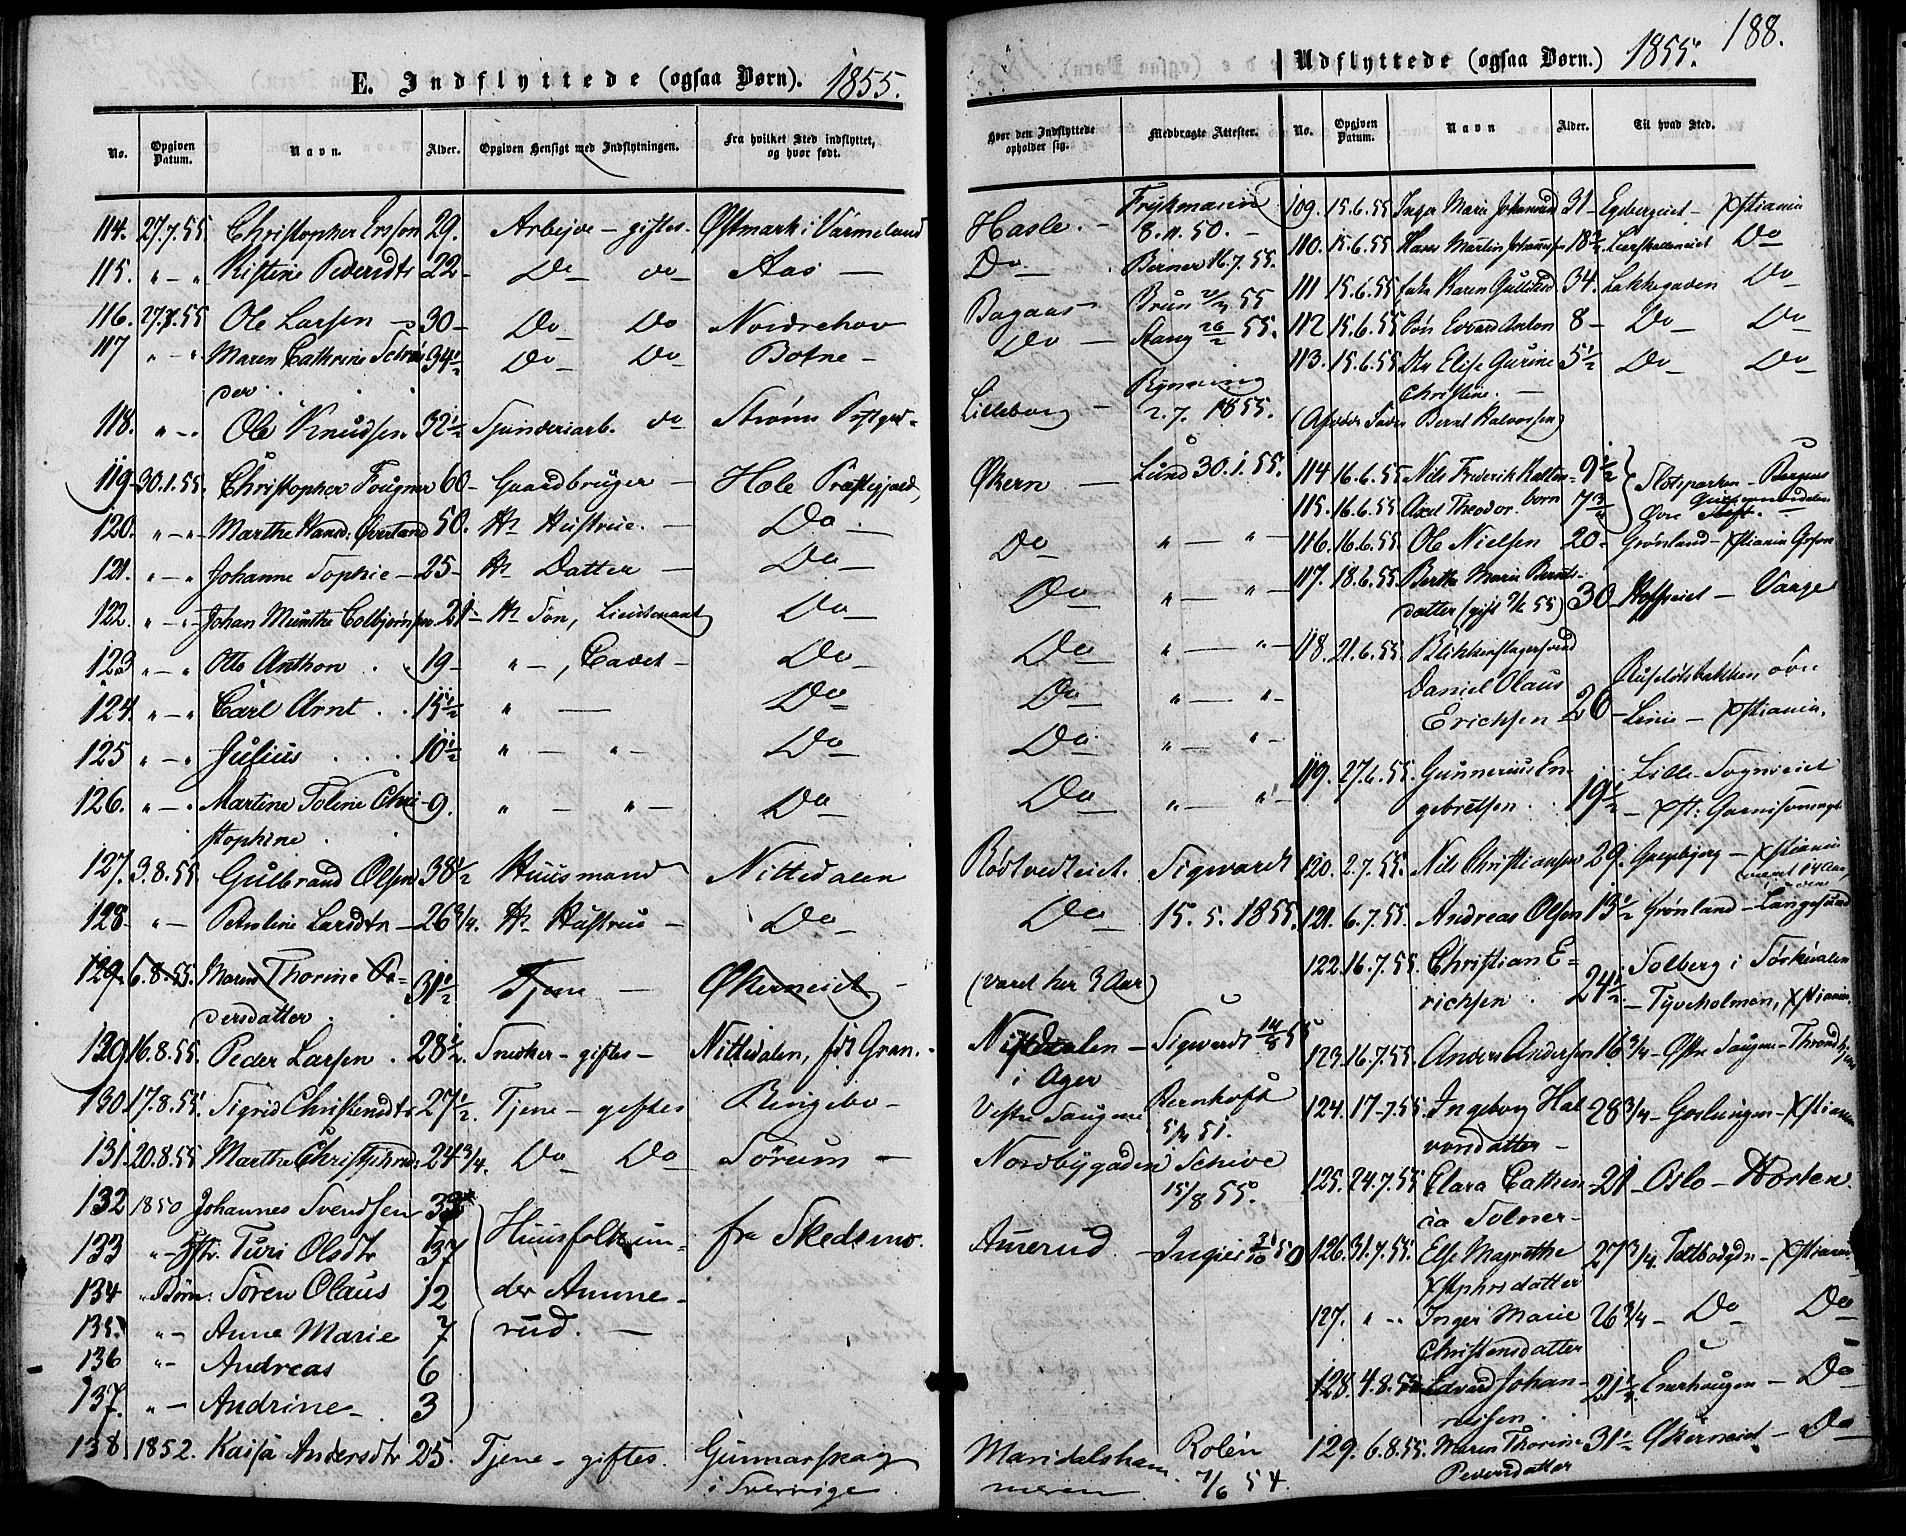 E. Indflyttede (ogsaa Børn). 1855.
No. Opgiven Datum. Navn. Alder. Opgiven Hensigt med Indflytningen. Fra hvilket Sted indflyttet, og hvor født.
114. 27.7.55 Christopher 29. Arbejde - giftes - Østmark i Värmeland
115. " - " Kistine Pedersdtr 22 - Do do Aas -
116. 27.7.55 Ole Larsen - 30 - Do Do Nordrehov
117 " - " Maren Cathrine 34½ Do Do Botne -
der.
118. " - " Ole Knudsen 32½ do Strøms
119. 30.1.55. Christopher Fougner 60 - Gaardbruger - Hole Præstegjeld
120. " - " Marthe Hansd: Øverland 50. Hs Hustrue. - Do -
121. " - " Johanne Sophie - 25 - Hs Datter - Do -
122. " - " Johan Munthe Colbjørnsen 21 - Hs Søn, Lieutenant Do
123 " - " Otto Anthon 19 - " - , Cadet - Do
124. " - " Carl Arnt 15½ " - Do
125 " - " Julius 10½ " - " - Do
126. " - " Martine Toline Chri- 9. " - " - Do
stophine.
127. 3.8.55. Gulbrand Olsen 38½ Huusmand Nittedalen
128. " - Pauline Larsdtr - 26¾. Hs Hustrue - Do
129. 6.8.55. Maren Thorine Pe- 31½ Tjene - Økerneiet -
dersdatter.
129 16.8.55. Peder Larsen 28½. Snedker - giftes - Nittedalen, født Gran.
130 17.8.55. Sigrid Christensdtr 27½. Tjene - giftes Ringebo -
131. 20.8.55 Marthe 24¾. Do Do Sørum -
132 1850 Johannes Svendsen 33
Huusfolk un-
fra Skedsmo.
133 " - Turi Olsdtr 37
134 " Børn: Søren Olaus 12
der Amme-
135. " - Anne Marie 7
rud. -
136 " - Andreas 6
137. " - Andrine 3
138 1852. Kaisa Andersdtr 25. Tjene - giftes. Gunnarskog
i Sverrige
188.
Udflyttede (ogsaa Børn.) 1855.
Hvor den Indflyttede opholder sig. Medbragte Attester. No. Opgiven Datum. Navn Alder. Til hvad Sted.
Hasle. - Frykmann
8.11.50. -
Do Berner 16.7.55.
Bagaas - Brun 55
Do - Stang 26/2 55.
Lilleborg - Rynning
2.7.1855.
Økern - Lund 30.1.55.
Do " - " -
Do " - " -
Do " - " -
Do " - " -
Do " - " -
Do " - " -
Rødtvedteiet. Sigwardt
Do 15.5.1855.
(været her 3 Aar)
Nitdalen - Sigwardt 14/8 55
i Ager
Vestre Haugen Bernhoft
51.
Nordbygaden Schive
15/8 55.
Amerud. - 50
Maridalsham- Rolén
meren 7/6 54.
109. 15.6.55 Inger Marie 31 - Egebergeiet - Xstiania
110. 15.6.55 Hans Martin 18 Do
111 15.6.55 Karen 34. Lakkegaden Do
112 15.6.55 Søn Edvard Anton 8 - Do Do
113. 15.6.55 Dtr Elise Gurine 5½ Do Do
Christine. -
(Afdøde Fader Bernt Halvorsen)
114 16.6.55 Nils Frederik 9½ Slotsparken - Bergens
115. 16.6.55 Axel Theodor 7¾
116. 16.6.55 Ole Nielsen 20 - Grønland - Xstiania
117. 18.6.55 Berthe Marie Bernts-
datter (gift 55) 30 - - Vaage
118. 21.6.55 Blikkenslagersvend
Daniel Olaus Ruseløkbakken øvre
Erichsen 26 - Linie - Xstiania.
119. 27.6.55. Gunnerius En- Lille-Sogneiet
gebretsen 19½ - Xst: Garnisons
120. 2.7.55. Nils Christiansen 29. - Xstiania
121. 6.7.55. Andreas Olsen 13½ Grønland - Langesund
122. 16.7.55 Christian E- Solberg i Sørkedalen
richsen 24½ - Tyveholmen, Xstiania.
123. 16.7.55. Anders Andersen 16¾ - Østre Haugen - Throndhjem
124. 17-7.55. Ingeborg Hal- 28¾ - - Xstiania
vorsdatter -
125. 24.7.55 Clara Cathin- 21 - Oslo - Horten.
ca Solner -
126. 31.7.55. Else Magrethe 27¾. - Xstiania
datter
127. " - " Inger Marie 26¾ - Do Do
Christensdatter
128. 4.8.55 Edvard Johan- 21½ Enerhaugen - Do
nesen.
129. 6.8.55. Maren Thorine 31½ Økerneiet - Do
Pedersdatter